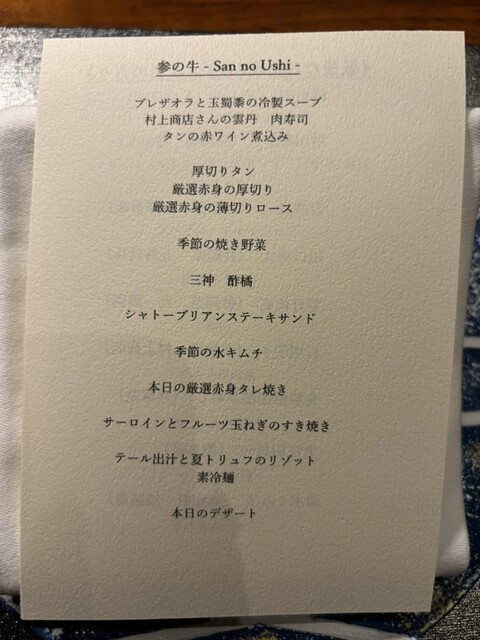 参の牛 - San no Ushi -
ブレザオラと玉蜀黍の冷製スープ
村上商店さんの雲丹　肉寿司
タンの赤ワイン煮込み
厚切りタン
厳選赤身の厚切り
厳選赤身の薄切りロース
季節の焼き野菜
三神　酢橘
シャトーブリアンステーキサンド
季節の水キムチ
本日の厳選赤身タレ焼き
サーロインとフルーツ玉ねぎのすき焼き
テール出汁と夏トリュフのリゾット
素冷麺
本日のデザート